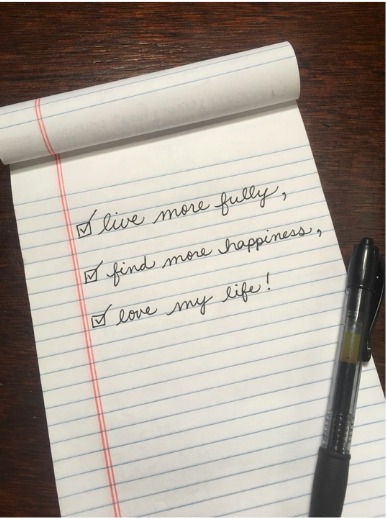 ☑ live more fully,
☑ find more happiness,
☑ love my life!